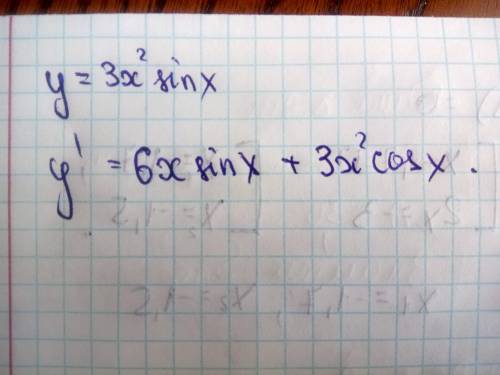 y = 3x² sinx
y' = 6x sinx + 3x² cosx .